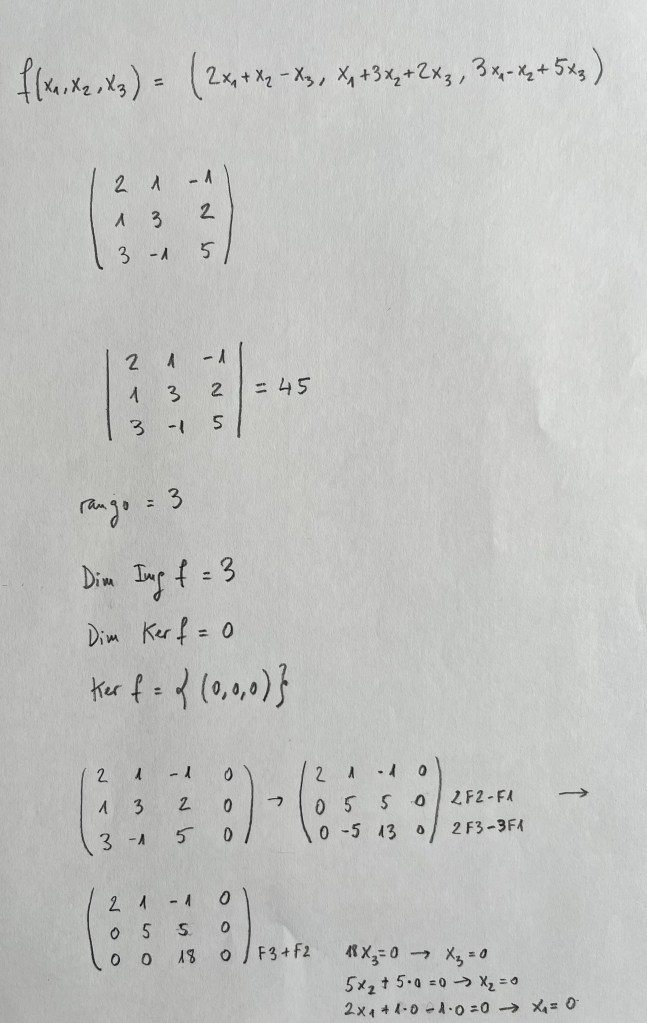 f(x₁,x₂,x₃) = (2x₁+x₂-x₃, x₁+3x₂+2x₃, 3x₁-x₂+5x₃)
( 2 1 -1 )
( 1 3 2 )
( 3 -1 5 )
| 2 1 -1 |
| 1 3 2 | = 45
| 3 -1 5 |
rango = 3
Dim Img f = 3
Dim Ker f = 0
Ker f = { (0,0,0) }
( 2 1 -1 0 ) ( 2 1 -1 0 )
( 1 3 2 0 ) → ( 0 5 5 0 ) 2F2-F1 →
( 3 -1 5 0 ) ( 0 -5 13 0 ) 2F3-3F1
( 2 1 -1 0 )
( 0 5 5 0 )
( 0 0 18 0 ) F3+F2 18x₃=0 → x₃=0
5x₂+5·0=0 → x₂=0
2x₁+1·0-1·0=0 → x₁=0